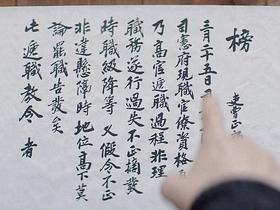 榜
吏曹正
三月二十五日
司憲府現職官僚資格
乃高官遞職過程非理
職務遂行過失不正摘發
時職級降等 又假令不正
非違懸隔時 地位高下莫
論罷職告發矣
此遞職教令 者